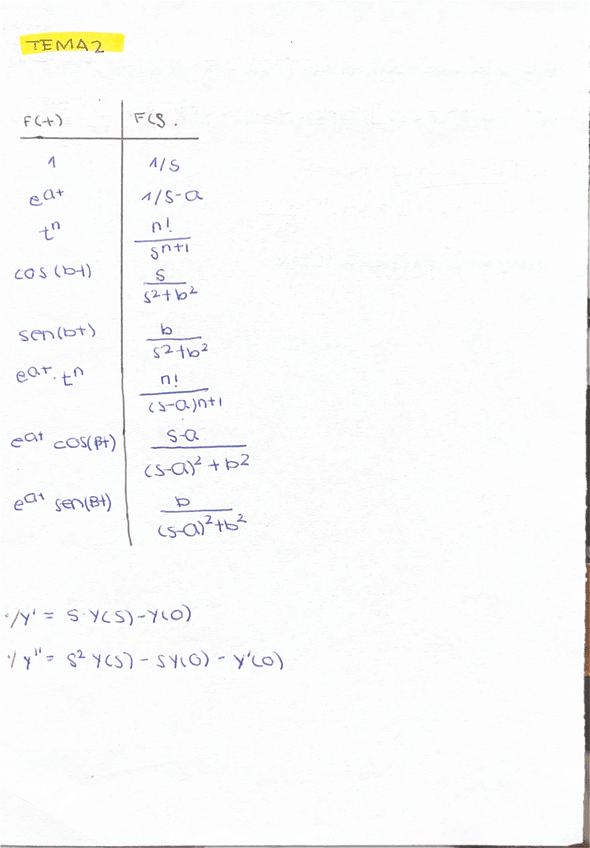 TEMA 2
F(t) F(S.
1 1/S
e^at 1/S-a
t^n n!/s^n+1
cos(bt) s/s²+b²
sen(bt) b/s²+b²
e^at·t^n n!/(s-a)n+1
e^at cos(βt) s-a/(s-a)²+b²
e^at sen(βt) b/(s-a)²+b²
·/y' = S·Y(S)-Y(0)
·/y'' = S²Y(S)-SY(0)-Y'(0)